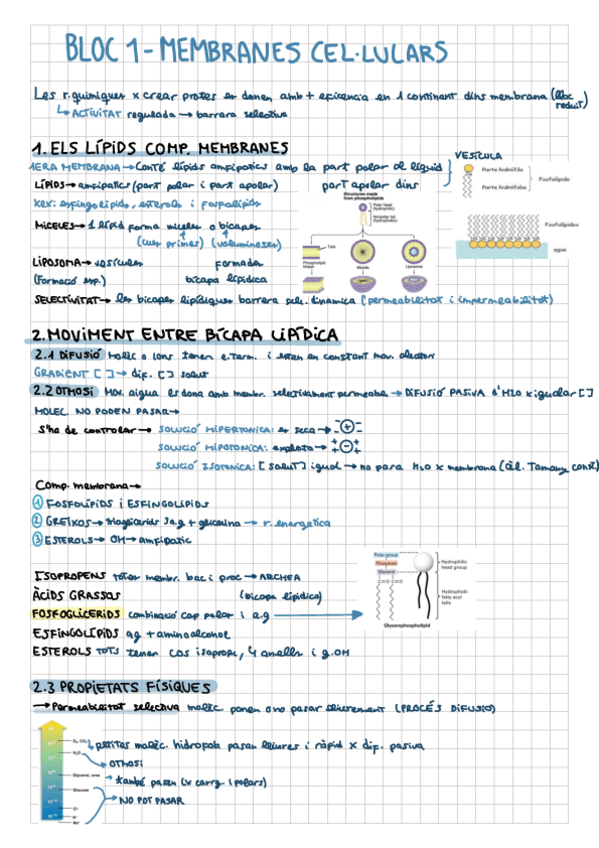 BLOC 1 - MEMBRANES CEL·LULARS
Les r.químiques x crear protes es donen amb + eficencia en 1 continent dins membrana (lloc reduït)
↳ ACTIVITAT regulada → barrera selectiva
1. ELS LÍPIDS COMP. MEMBRANES
1ERA MEMBRANA → Conté lípids amfipatics amb la part polar al líquid
part apolar dins
LÍPIDS → amfipatics (part polar i part apolar)
xex: esfingolípids, esterols i fosfolípids
MICELES → 1 lípid forma miceles o bicapes
(cues primes) (voluminoses)
LIPOSOMA → vesícules formades
(Formació esp.) bicapa lipídica
SELECTIVITAT → les bicapes lipídiques barrera sele. dinamica (permeabilitat i impermeabilitat)
VESÍCULA
Parte hidrófila
Parte hidrófoba
Fosfolípido
Fosfolípidos
agua
Structures made from phospholipids
Polar head (hydrophilic)
Nonpolar tail (hydrophobic)
Tails
Phospholipid bilayer
Micelle
Liposome
2. MOVIMENT ENTRE BICAPA LIPÍDICA
2.1 DIFUSIÓ Molèc o ions tenen e.term. i estan en constant mov. aleatori
GRADIENT [ ] → dif. [ ] solut
2.2 OTMOSI Mov. aigua es dona amb membr. selectivament permeable → DIFUSIÓ PASIVA d'H2O x igualar [ ]
MOLEC. NO PODEN PASAR →
S'ha de controlar → SOLUCIÓ HIPERTONICA: es seca →
SOLUCIÓ HIPOTONICA: explota →
SOLUCIÓ ISOTONICA: [solut] igual → no para H2O x membrana (cèl. Tamany const)
Comp. membrana →
1 FOSFOLÍPIDS i ESFINGOLIPIDS
2 GREIXOS → triaglicerids 3a.g + glicerina → r. energetica
3 ESTEROLS → OH → amfipatic
ISOPROPENS totes membr. bac i proc → ARCHEA
ÀCIDS GRASSOS (bicapa lipídica)
FOSFOGLICERIDS combinació cap polar i a.g
ESFINGOLÍPIDS a.g + aminoalcohol
ESTEROLS TOTS tenen cos isoprope, 4 anells i g.OH
Polar group
Phosphate
Glycerol
Hydrophilic head group
Hydrophobic fatty acyl tails
Glycerophospholipid
2.3 PROPIETATS FÍSIQUES
→ Permeabilitat selectiva molèc. poden o no pasar lliurement (PROCÉS DIFUSIÓ)
O₂, CO₂
↳ petites molèc. hidrofob pasen lliures i ràpid x dif. pasiva
H₂O
OTMOSI
Glycerol, urea
*també pasen (x carrg. i polars)
Glucose
NO POT PASAR
Cl⁻
K⁺
Na⁺